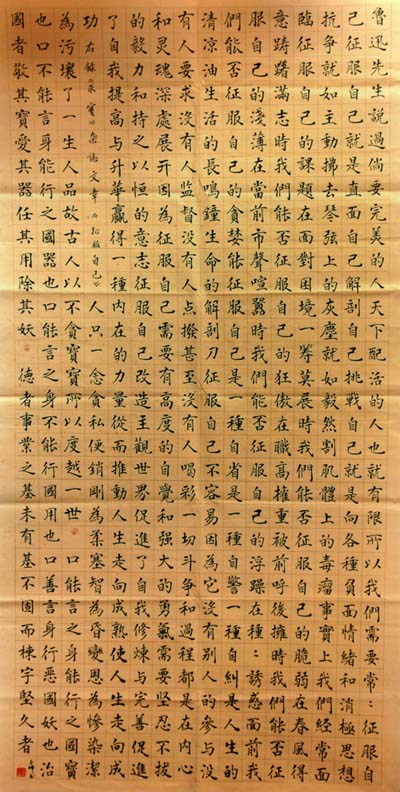 魯迅先生說過倘要完美的人天下配活的人也就有限所以我們需要常:征服自
己征服自己就是直面自己解剖自己挑戰自己就是向各種負面情緒和消極思想
抗争就如主動拂去琴弦上的灰塵就如毅然割肌體上的毒瘤事實上我們經常面
臨征服自己的課題在面對困境一籌莫展時我們能否征服自己的脆弱在春風得
意躊躇滿志時我們能否征服自己的狂傲在職高權重被前呼後擁時我們能否征
服自己的淺薄在當前市聲喧囂時我們能否征服自己的浮躁在種:誘惑面前我
們能否征服自己的貪婪能征服自己是一種自省是一種自警一種自糾是人生的
清凉油生活的長鳴鐘生命的解剖刀征服自己不容易因為它沒有別人的參与沒
有人要求沒有人監督沒有人點撥甚至沒有人喝彩一切斗争和過程都是在内心
和靈魂深處展开因為征服自己需要有高度的自覺和强大的勇氣需要堅忍不拔
的毅力和持之以恒的意志征服自己改造主觀世界促進了自我修煉与完善促進
了自我提高与升華贏得一種内在的力量從而推動人生走向成熟使人生走向成
功 右録求實雜誌文章《征服自己》 人只一念貪私便銷剛為柔塞智為昏變恩為慘染潔
為污壞了一生人品故古人以不貪寶寶所以度越一世 口能言之身能行之國寶
也口不能言身能行之國器也口能言之身不能行國用也口善言身行惡國妖也治
國者敬其寶愛其器任其用除其妖 德者事業之基未有基不固而棟宇堅久者